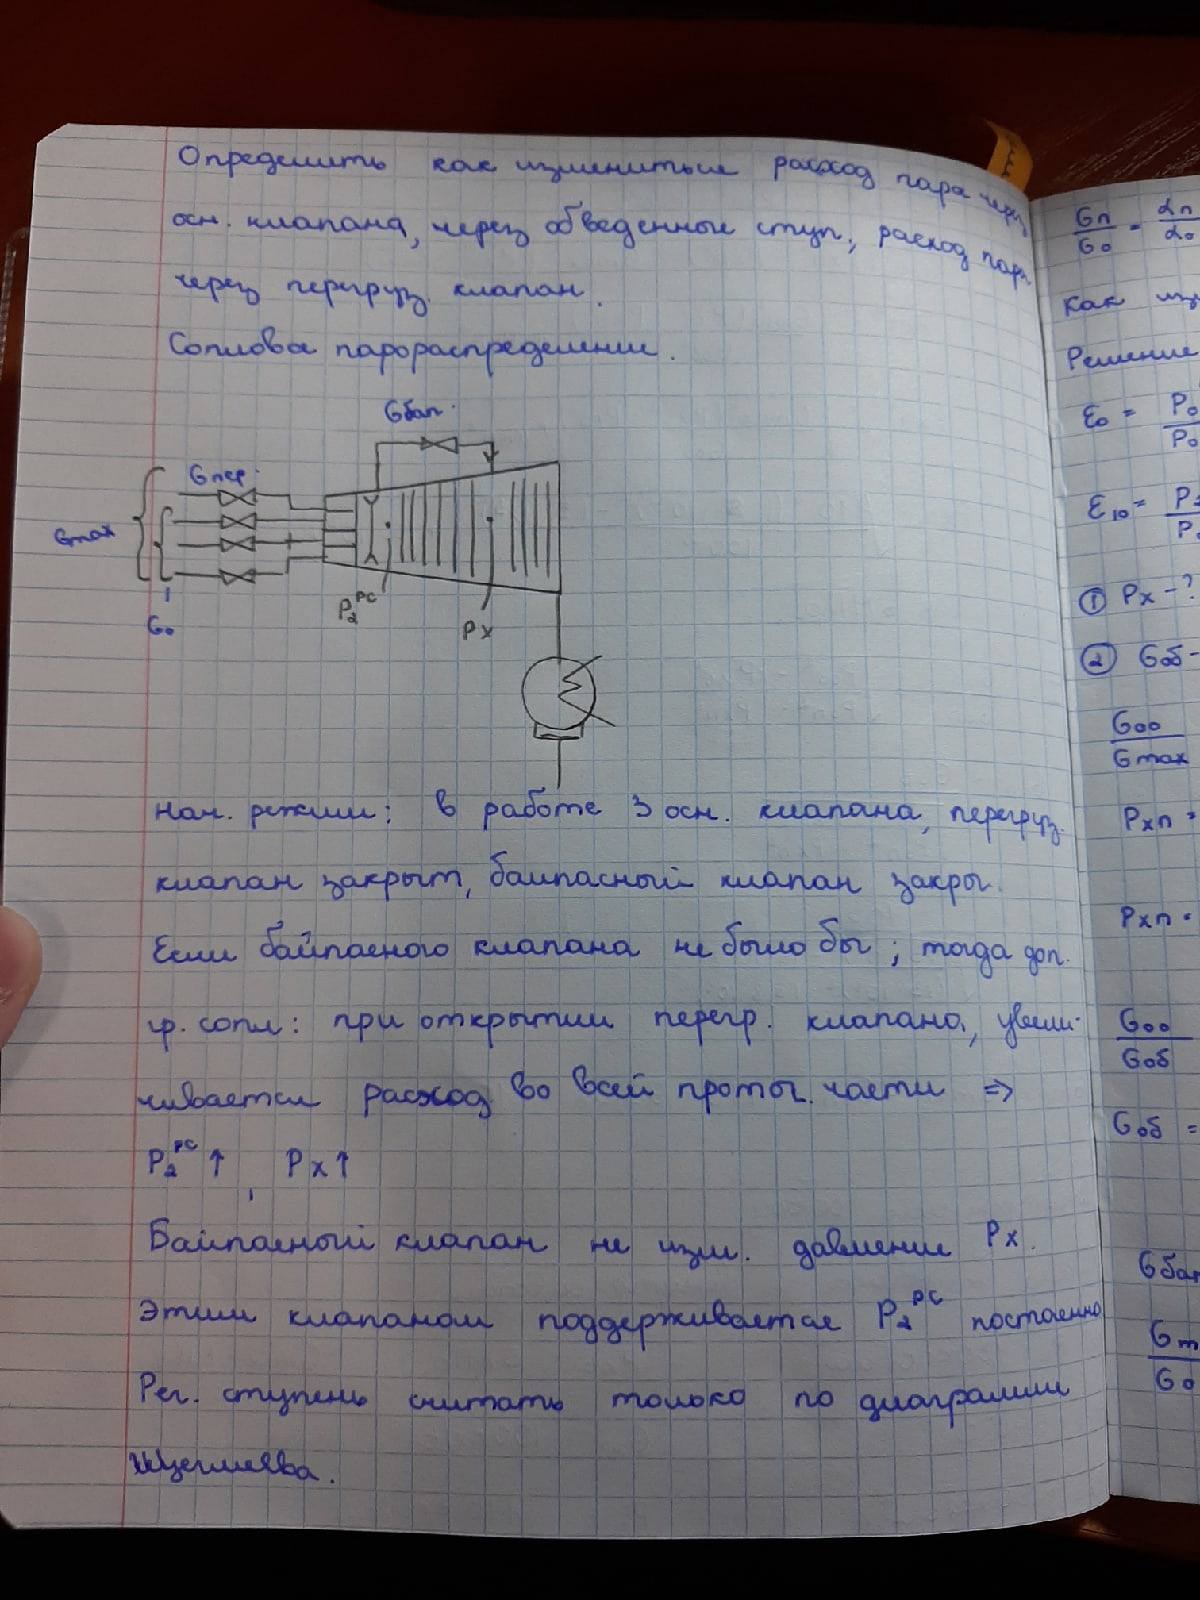 Определить как измениться расход пара через
осн. клапана, через обведенные ступ., расход пара
через перегруз. клапан.
Сопловое парораспределение.
Gбап.
Gпер.
Gmax
G₀
P₂ᴾᶜ
Pх
Нач. режим: в работе 3 осн. клапана, перегруз.
клапан закрыт, баипасный клапан закры.
Если байпасного клапана не было бы; тогда доп.
гр. сопл: при открытии перегр. клапана, увели-
чивается расход во всей проточ. части ⇒
P₂ᴾᶜ ↑, Pх↑
Байпасный клапан не изм. давление Pх.
Этим клапаном поддерживается P₂ᴾᶜ постоянно
Рег. ступень считать только по диаграмми
Щегляева.
Gп/G₀ = αп/α₀
Как из
Решение
ε₀ = P₀/P₀
ε₁₀ =
① Pх - ?
② Gоб -
G₀₀/Gmax
Pхп =
Pхп =
G₀₀/Gоб
Gоб =
Gбап
G₀